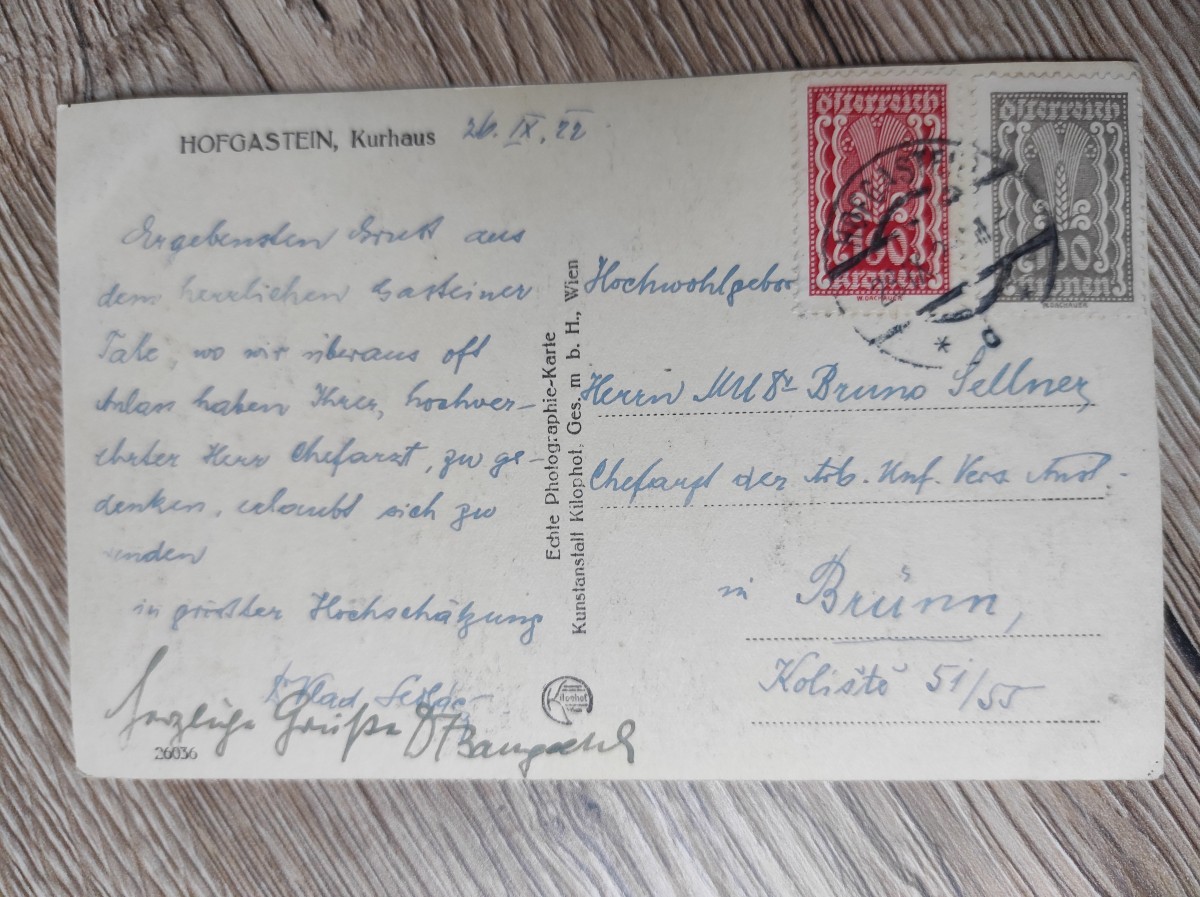 HOFGASTEIN, Kurhaus 26. IX. 22
Ergebensten Gruß aus
dem herrlichen Gasteiner
Tale, wo wir überaus oft
Anlass haben Ihrer, hochver-
ehrter Herr Chefarzt, zu ge-
denken, erlaubt sich zu
senden
in grösster Hochschätzung
Herzliche Grüße Dr
26036
Echte Photographie-Karte
Kunstanstalt Kilophot, Ges. m b. H., Wien
Kilophot
Wien
österreich
Kronen
W. DACHAUER
österreich
Kronen
W. DACHAUER
HOFGASTEIN
Hochwohlgebor
Herrn MUDr Bruno Sellner,
Chefarzt der Arb. Unf. Vers Anst.
in Brünn,
Koliště 51/55